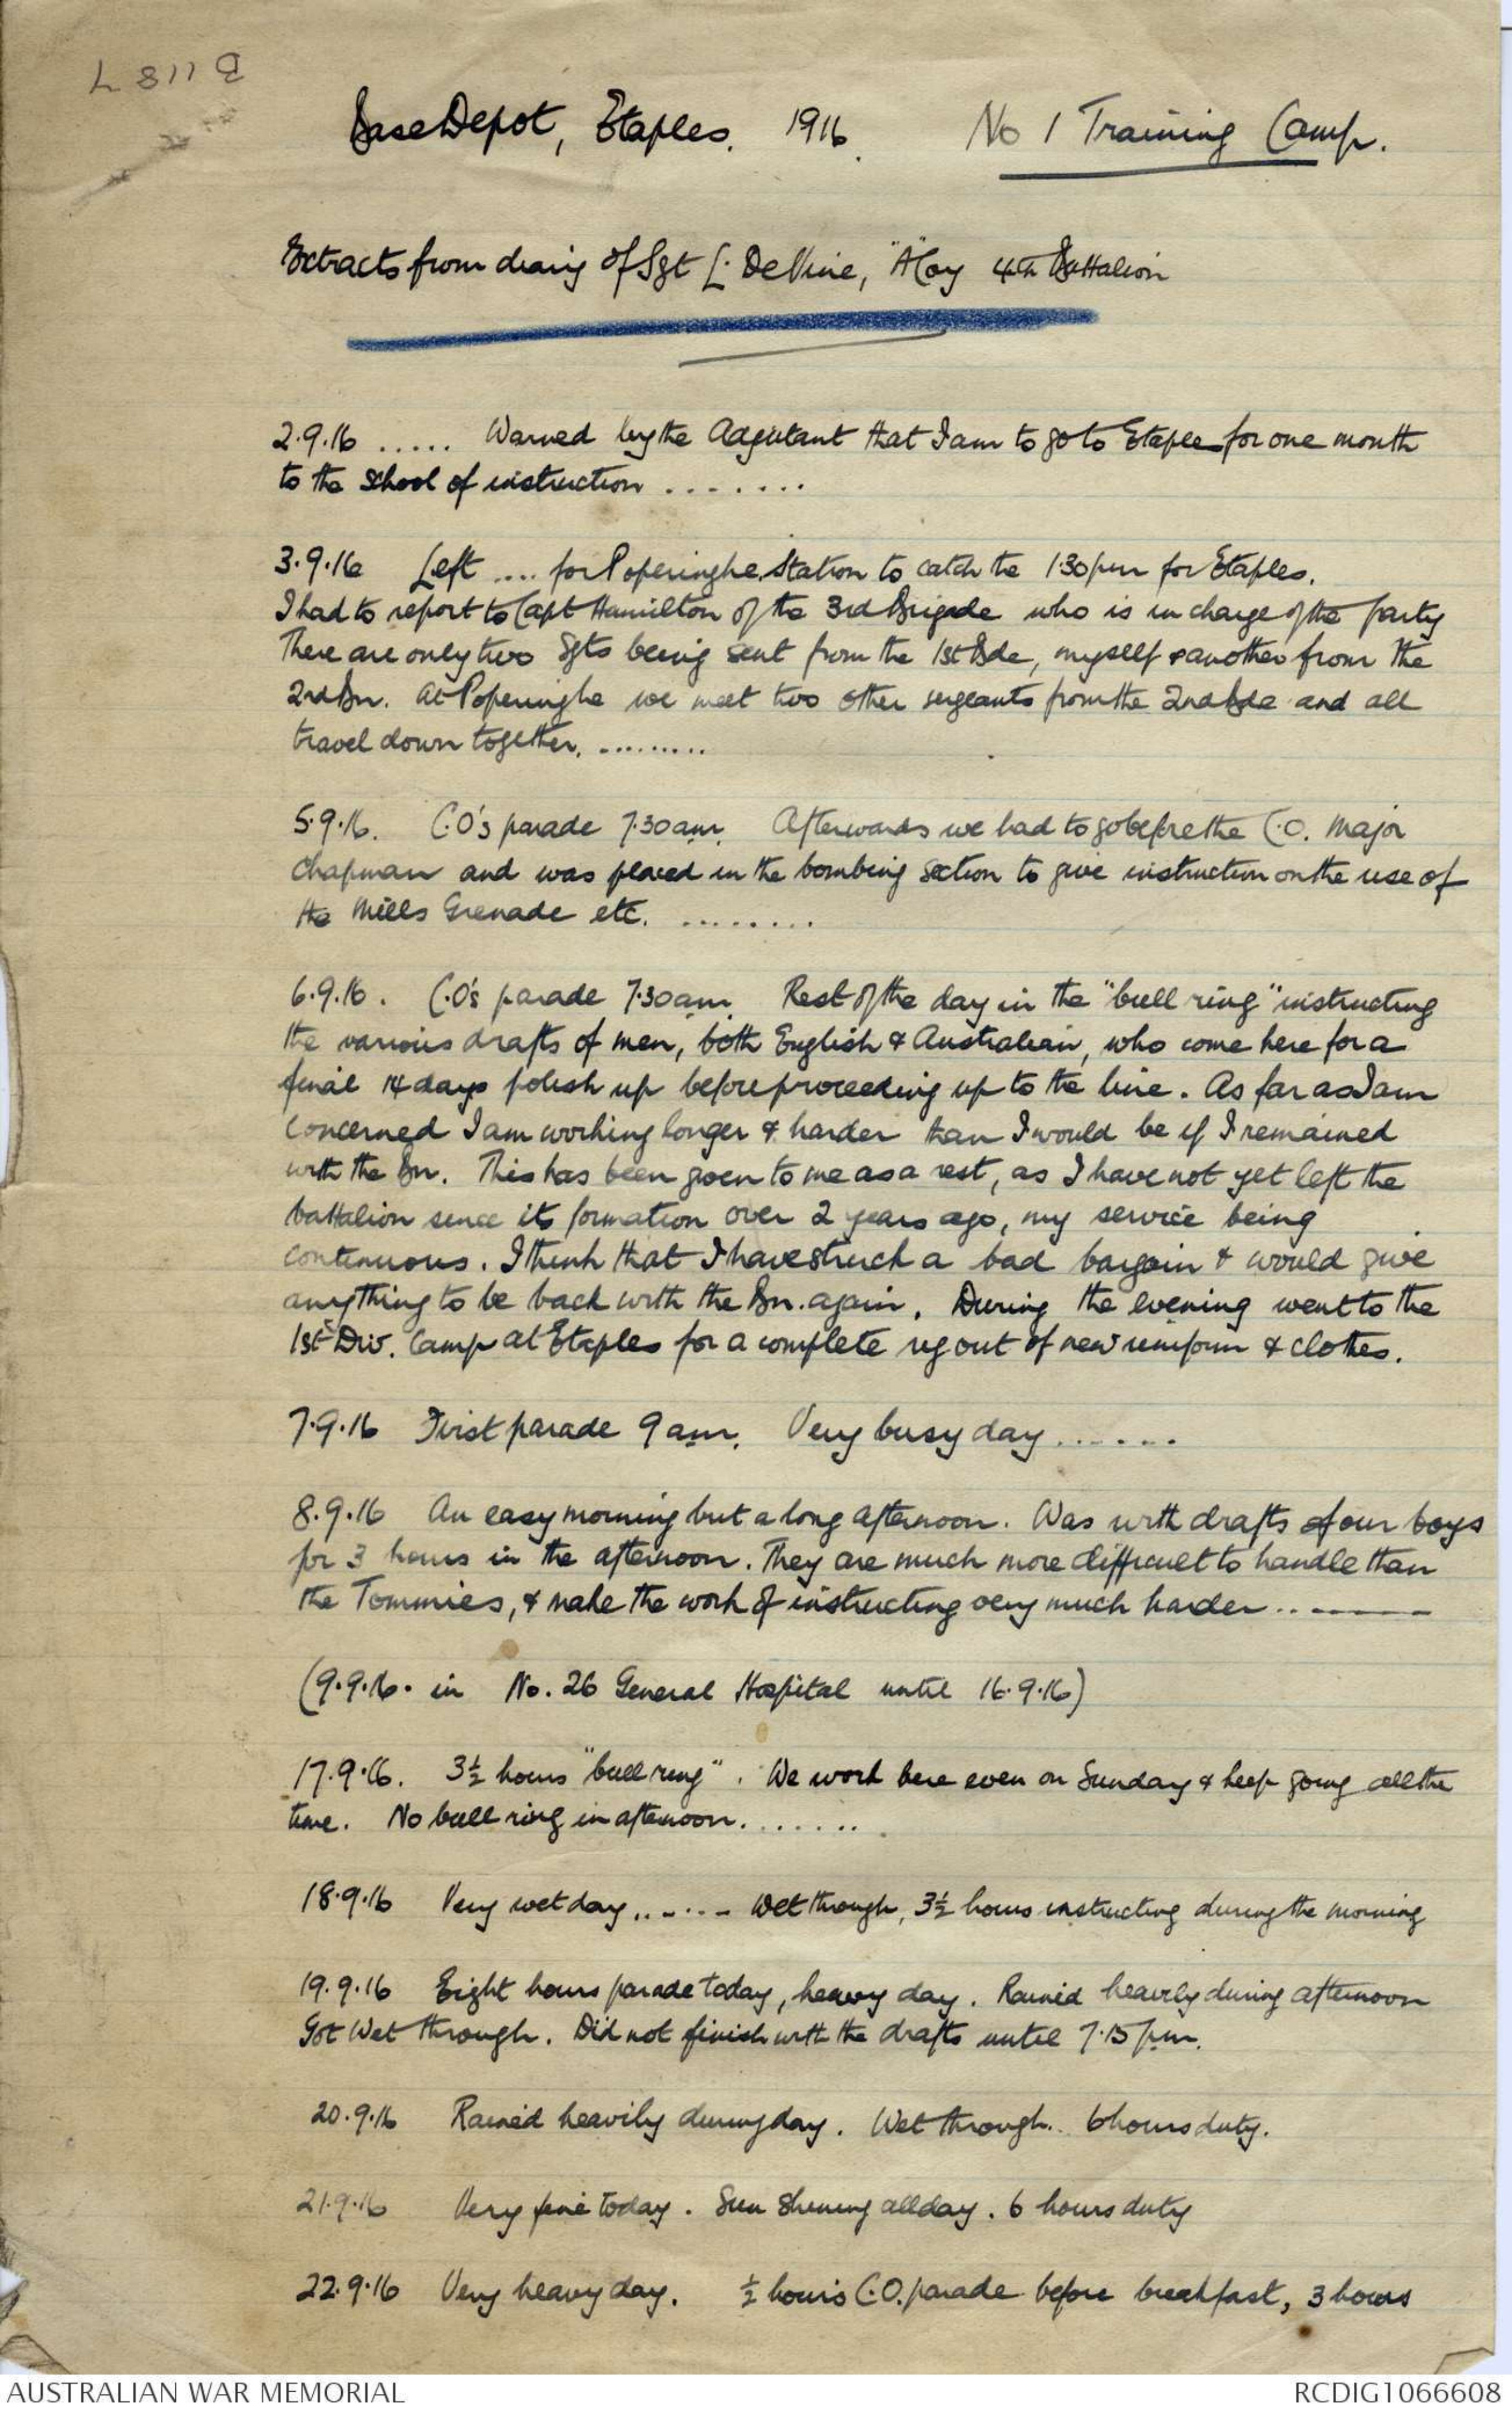 B 1187
Base Depot, Etaples. 1916. No 1 Training Camp.
Extracts from diary of Sgt L. De Vine, "A" Coy 4th Battalion
2.9.16 ..... Warned by the Adjutant that I am to go to Etaples for one month
to the School of instruction .......
3.9.16 Left .... for Poperinghe Station to catch the 1.30 pm for Etaples.
I had to report to Capt Hamilton of the 3rd Brigade who is in charge of the party
There are only two Sgts being sent from the 1st Bde, myself & another from the
2nd Bn. At Poperinghe we meet two other sergeants from the 2nd Bde and all
travel down together. .........
5.9.16. C.O's parade 7.30 am. Afterwards we had to go before the C.O. Major
Chapman and was placed in the bombing section to give instruction on the use of
the Mills Grenade etc. ........
6.9.16. C.O's parade 7.30 am. Rest of the day in the "bull ring" instructing
the various drafts of men, both English & Australian, who come here for a
final 14 days polish up before proceeding up to the line. As far as I am
concerned I am working longer & harder than I would be if I remained
with the Bn. This has been given to me as a rest, as I have not yet left the
battalion since its formation over 2 years ago, my service being
continuous. I think that I have struck a bad bargain & would give
anything to be back with the Bn. again. During the evening went to the
1st Div. Camp at Etaples for a complete rig out of new uniform & clothes.
7.9.16 First parade 9 am. Very busy day ......
8.9.16 An easy morning but a long afternoon. Was with drafts of our boys
for 3 hours in the afternoon. They are much more difficult to handle than
the Tommies, & make the work of instructing very much harder ..————
(9.9.16. in No. 26 General Hospital until 16.9.16)
17.9.16. 3½ hours "bull ring". We work here even on Sunday & keep going all the
time. No bull ring in afternoon. ......
18.9.16 Very wet day ...... Wet through, 3½ hours instructing during the morning
19.9.16 Eight hours parade today, heavy day. Rained heavily during afternoon
Got Wet through. Did not finish with the drafts until 7.15 pm.
20.9.16 Rained heavily during day. Wet through. 6 hours duty.
21.9.16 Very fine today. Sun Shining all day. 6 hours duty
22.9.16 Very heavy day. ½ hours C.O. parade before breakfast, 3 hours
AUSTRALIAN WAR MEMORIAL
RCDIG1066608